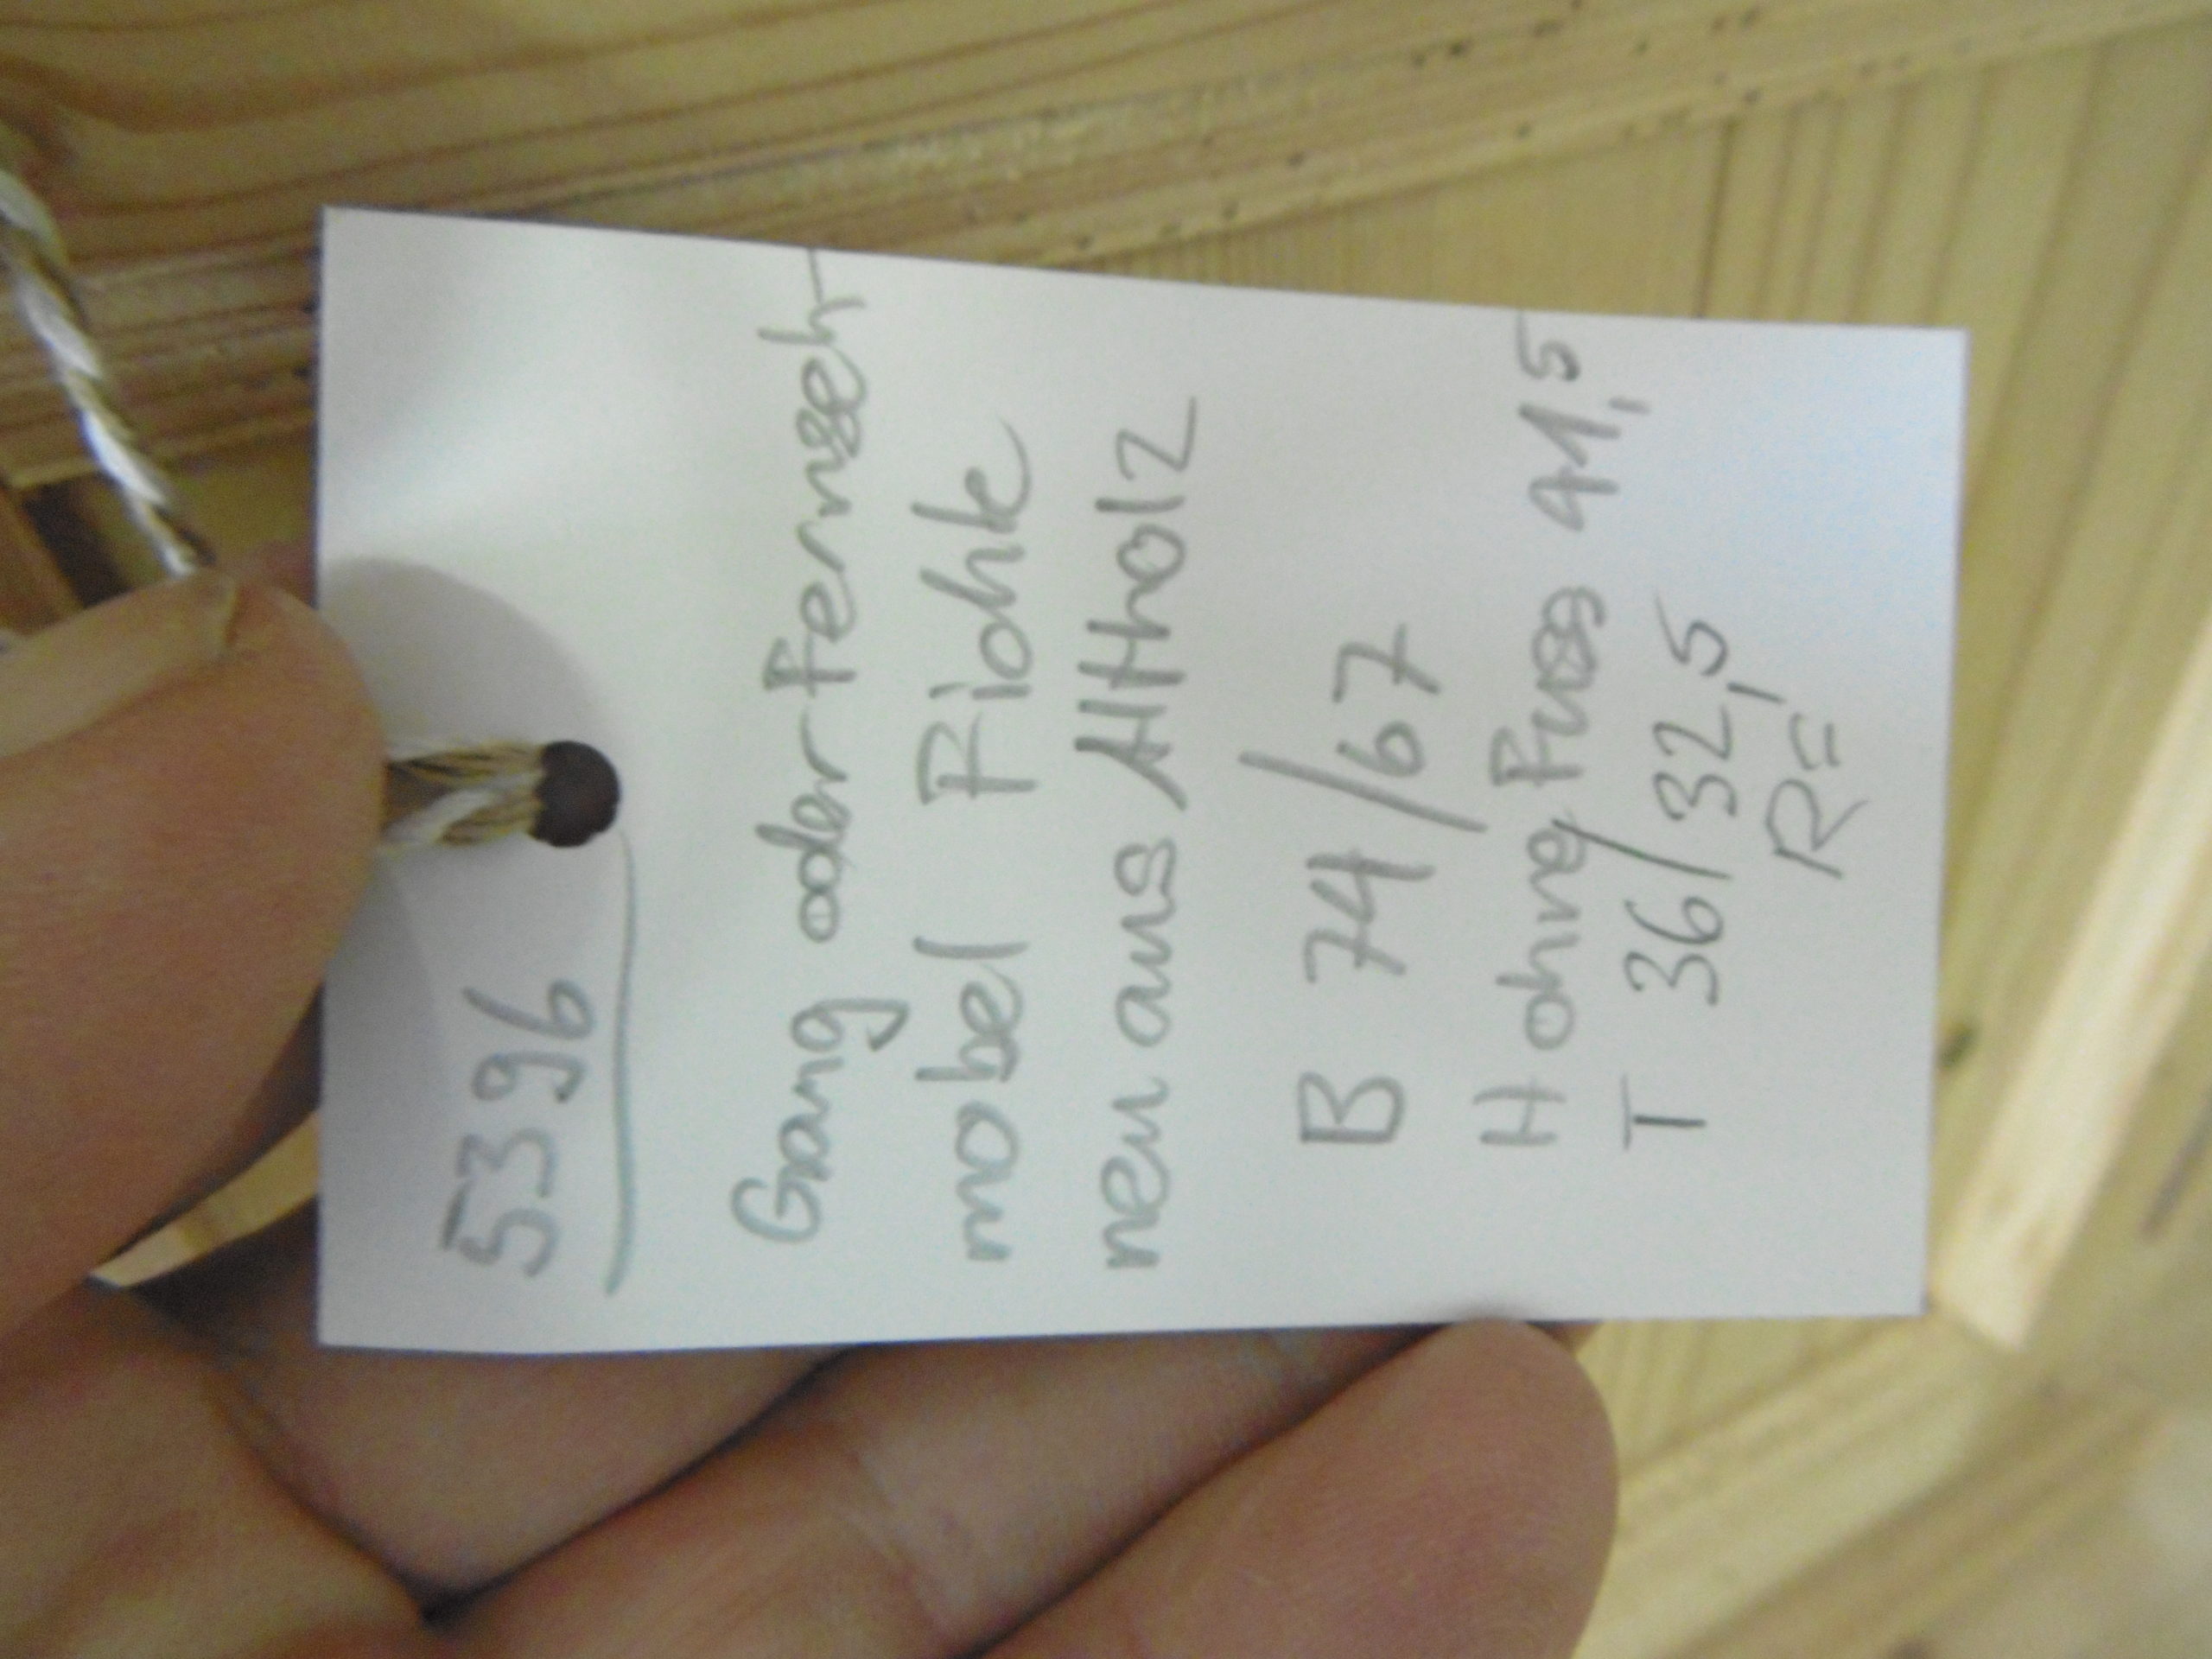 5396
Gang oder Fernseh-
mobel Fichte
neu aus Altholz
B 74/67
H ohne Fuss 41,5
T 36/32,5
R=